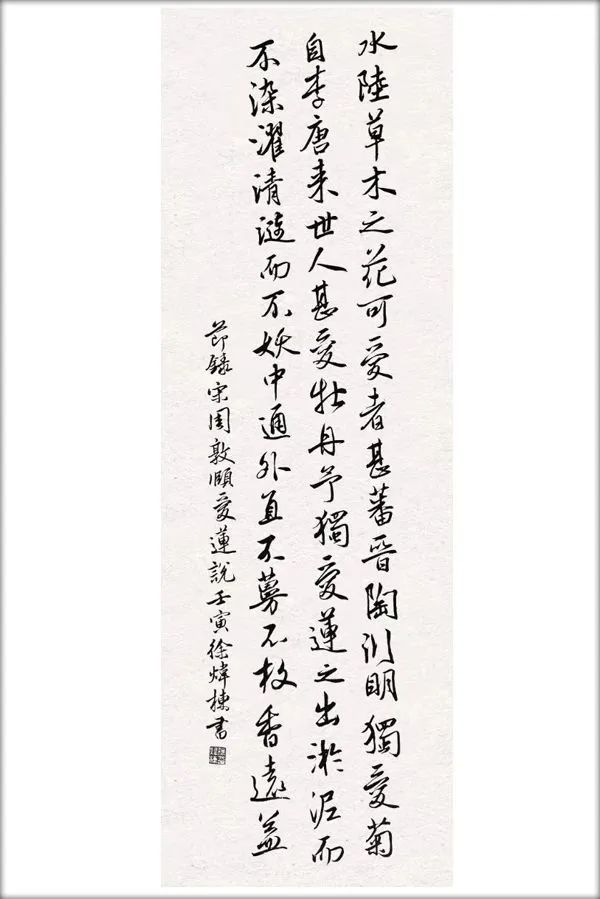 水陸草木之花可愛者甚蕃晋陶渊明獨愛菊
自李唐来世人甚愛牡丹予獨愛蓮之出淤泥而
不染濯清漣而不妖中通外直不蔓不枝香遠益
節錄宋周敦頤愛蓮說壬寅徐煒棟書